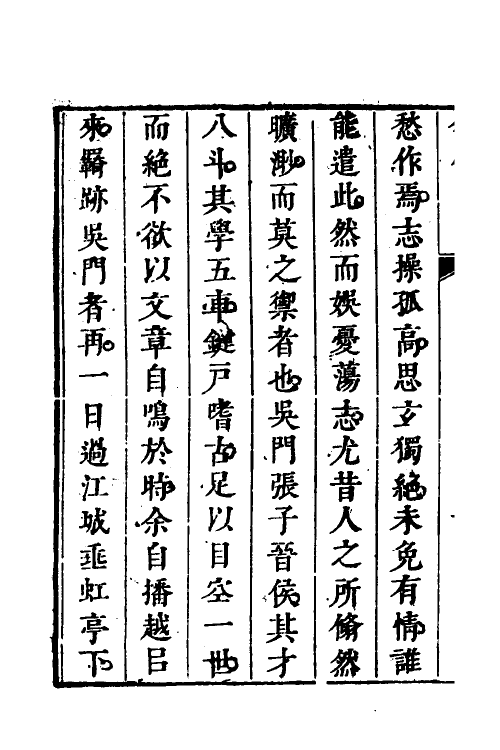 愁作焉志操孤高思玄獨絶未免有情誰
能遣此然而娛憂蕩志尤昔人之所翛然
曠渺而莫之禦者也吳門張子晉侯其才
八斗其學五車鍵戸嗜古足以目空一世
而絶不欲以文章自鳴於時余自播越㠯
來羈跡吳門者再一日過江城垂虹亭下